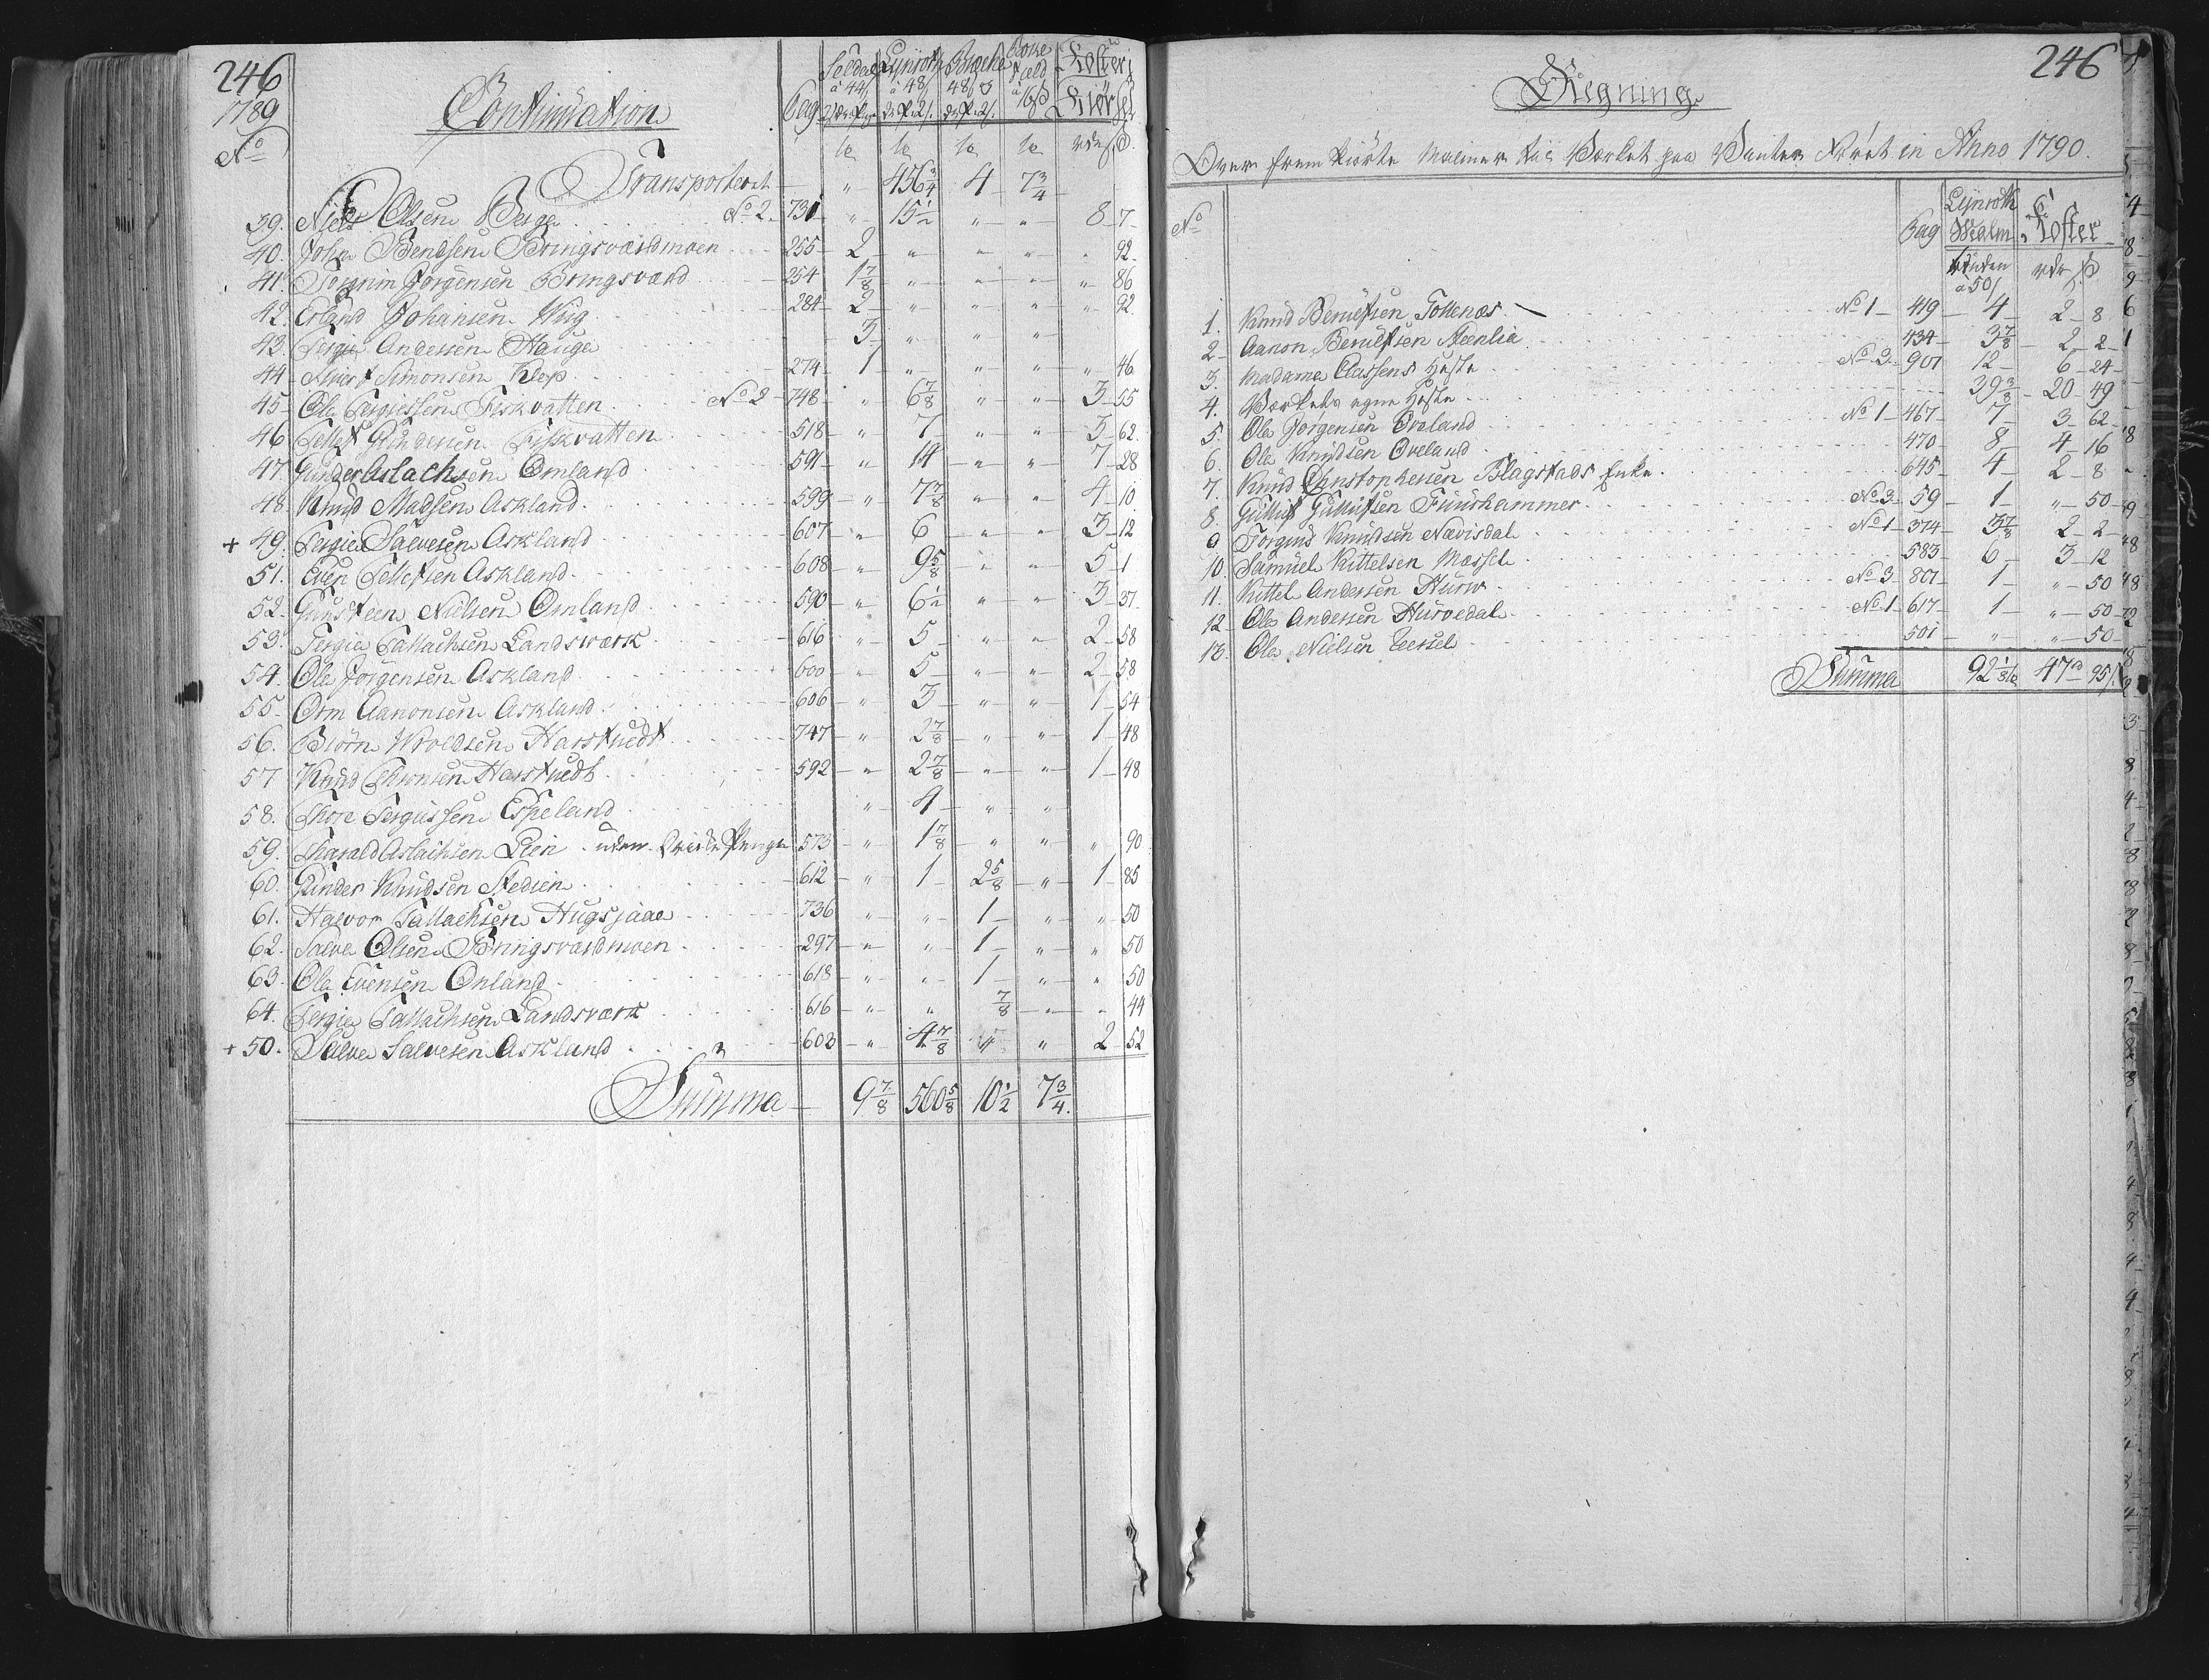 246
1789
No
Continuation
Pag
Lynroth
à 44/
à 48/
Koster
Kiørsel
Transporteret " 456 3/4 4 7 3/4
39. Niels Olsen Berge No 2. 731 " 15 1/2 " " 8 7
40. John Bendsen Bringsværdmoen 255 2 " " " " 92
41. Torgrim Jørgensen Bringsværd 254 1 7/8 " " " " 86
42. Erland Johansen Wiig 284 2 " " " " 92
43. Tergie Andersen Hauge 3 " " "
44 Sivert Simonsen Klep 274 1 " " " " 46
45 Ole Tergiessen Fiskvatten No 2 748 " 6 7/8 " " 3 55
46 Tellef Gundersen Fiskvatten 518 " 7 " " 3 62
47. Gunder Aslachsen Omland 591 " 14 " " 7 28
48. Knud Madsen Askland 599 " 7 7/8 " " 4 10
+ 49. Tergie Salvesen Askland 607 " 6 " " 3 12
51. Even Tellefsen Askland 608 " 9 5/8 " " 5 1
52. Gunsteen Nielsen Omland 590 " 6 1/2 " " 3 37
53. Tergie Tallachsen Landsværk 616 " 5 " " 2 58
54. Ole Jørgensen Askland 600 " 5 " " 2 58
55. Orm Aanonsen Askland 606 " 3 " " 1 54
56. Biørn Wroldsen Harstvedt 747 " 2 7/8 " " 1 48
57 Knud Harstvedt 592 " 2 7/8 " " 1 48
58. Thore Tergiessen Espeland " 4 " "
59. Tharald Aslachsen Lien uden Penge 573 " 1 7/8 " " " 90
60. Gunder Knudsen Stedien 612 " 1 2 5/8 " 1 85
61. Halvor Tallachsen Hugsjaae 736 " " 1 " " 50
62. Salve Olsen Bringsværdmoen 297 " " 1 " " 50
63. Ole Evensen Omland 618 " " 1 " " 50
64. Tergie Tallachsen Landsværk 616 " " 7/8 " " 44
+ 50. Salve Salvesen Askland 602 " 4 7/8 " " 2 52
Summa 9 7/8 560 5/8 10 1/2 7 3/4
246
Regning
Over frem kiørte Malmer til Værket paa Vinter Føret in Anno 1790.
No Pag Lynroth Malm Koster
Tønden à 50/ rdr ß
1. Knud Berulfsen Tottenæs No 1 419 4 2 8
2 Aanon Berulfsen Steenlia 434 3 7/8 2 2
3. Madame Classens Heste No 3 901 12 6 24
4. Værkets egne Heste 39 3/8 20 49
5. Ole Jørgensen Øveland No 1 467 7 3 62
6. Ole Knudsen Øveland 470 8 4 16
7. Knud Christophersen Blagstads Enke 645 4 2 8
8. Gullik Gullicksen Fuurshammer No 3 59 1 " 50
9 Torgius Knudsen Nævisdal No 1 374 3 7/8 2 2
10. Samuel Kittelsen Messel 583 6 3 12
11. Kittel Andersen Hurve No 3 801 1 " 50
12 Ole Andersen Hurvedal No 1 617 1 " 50
13. Ole Nielsen Eersel 501 " " 50
Summa 92 1/8 47 rd 95/